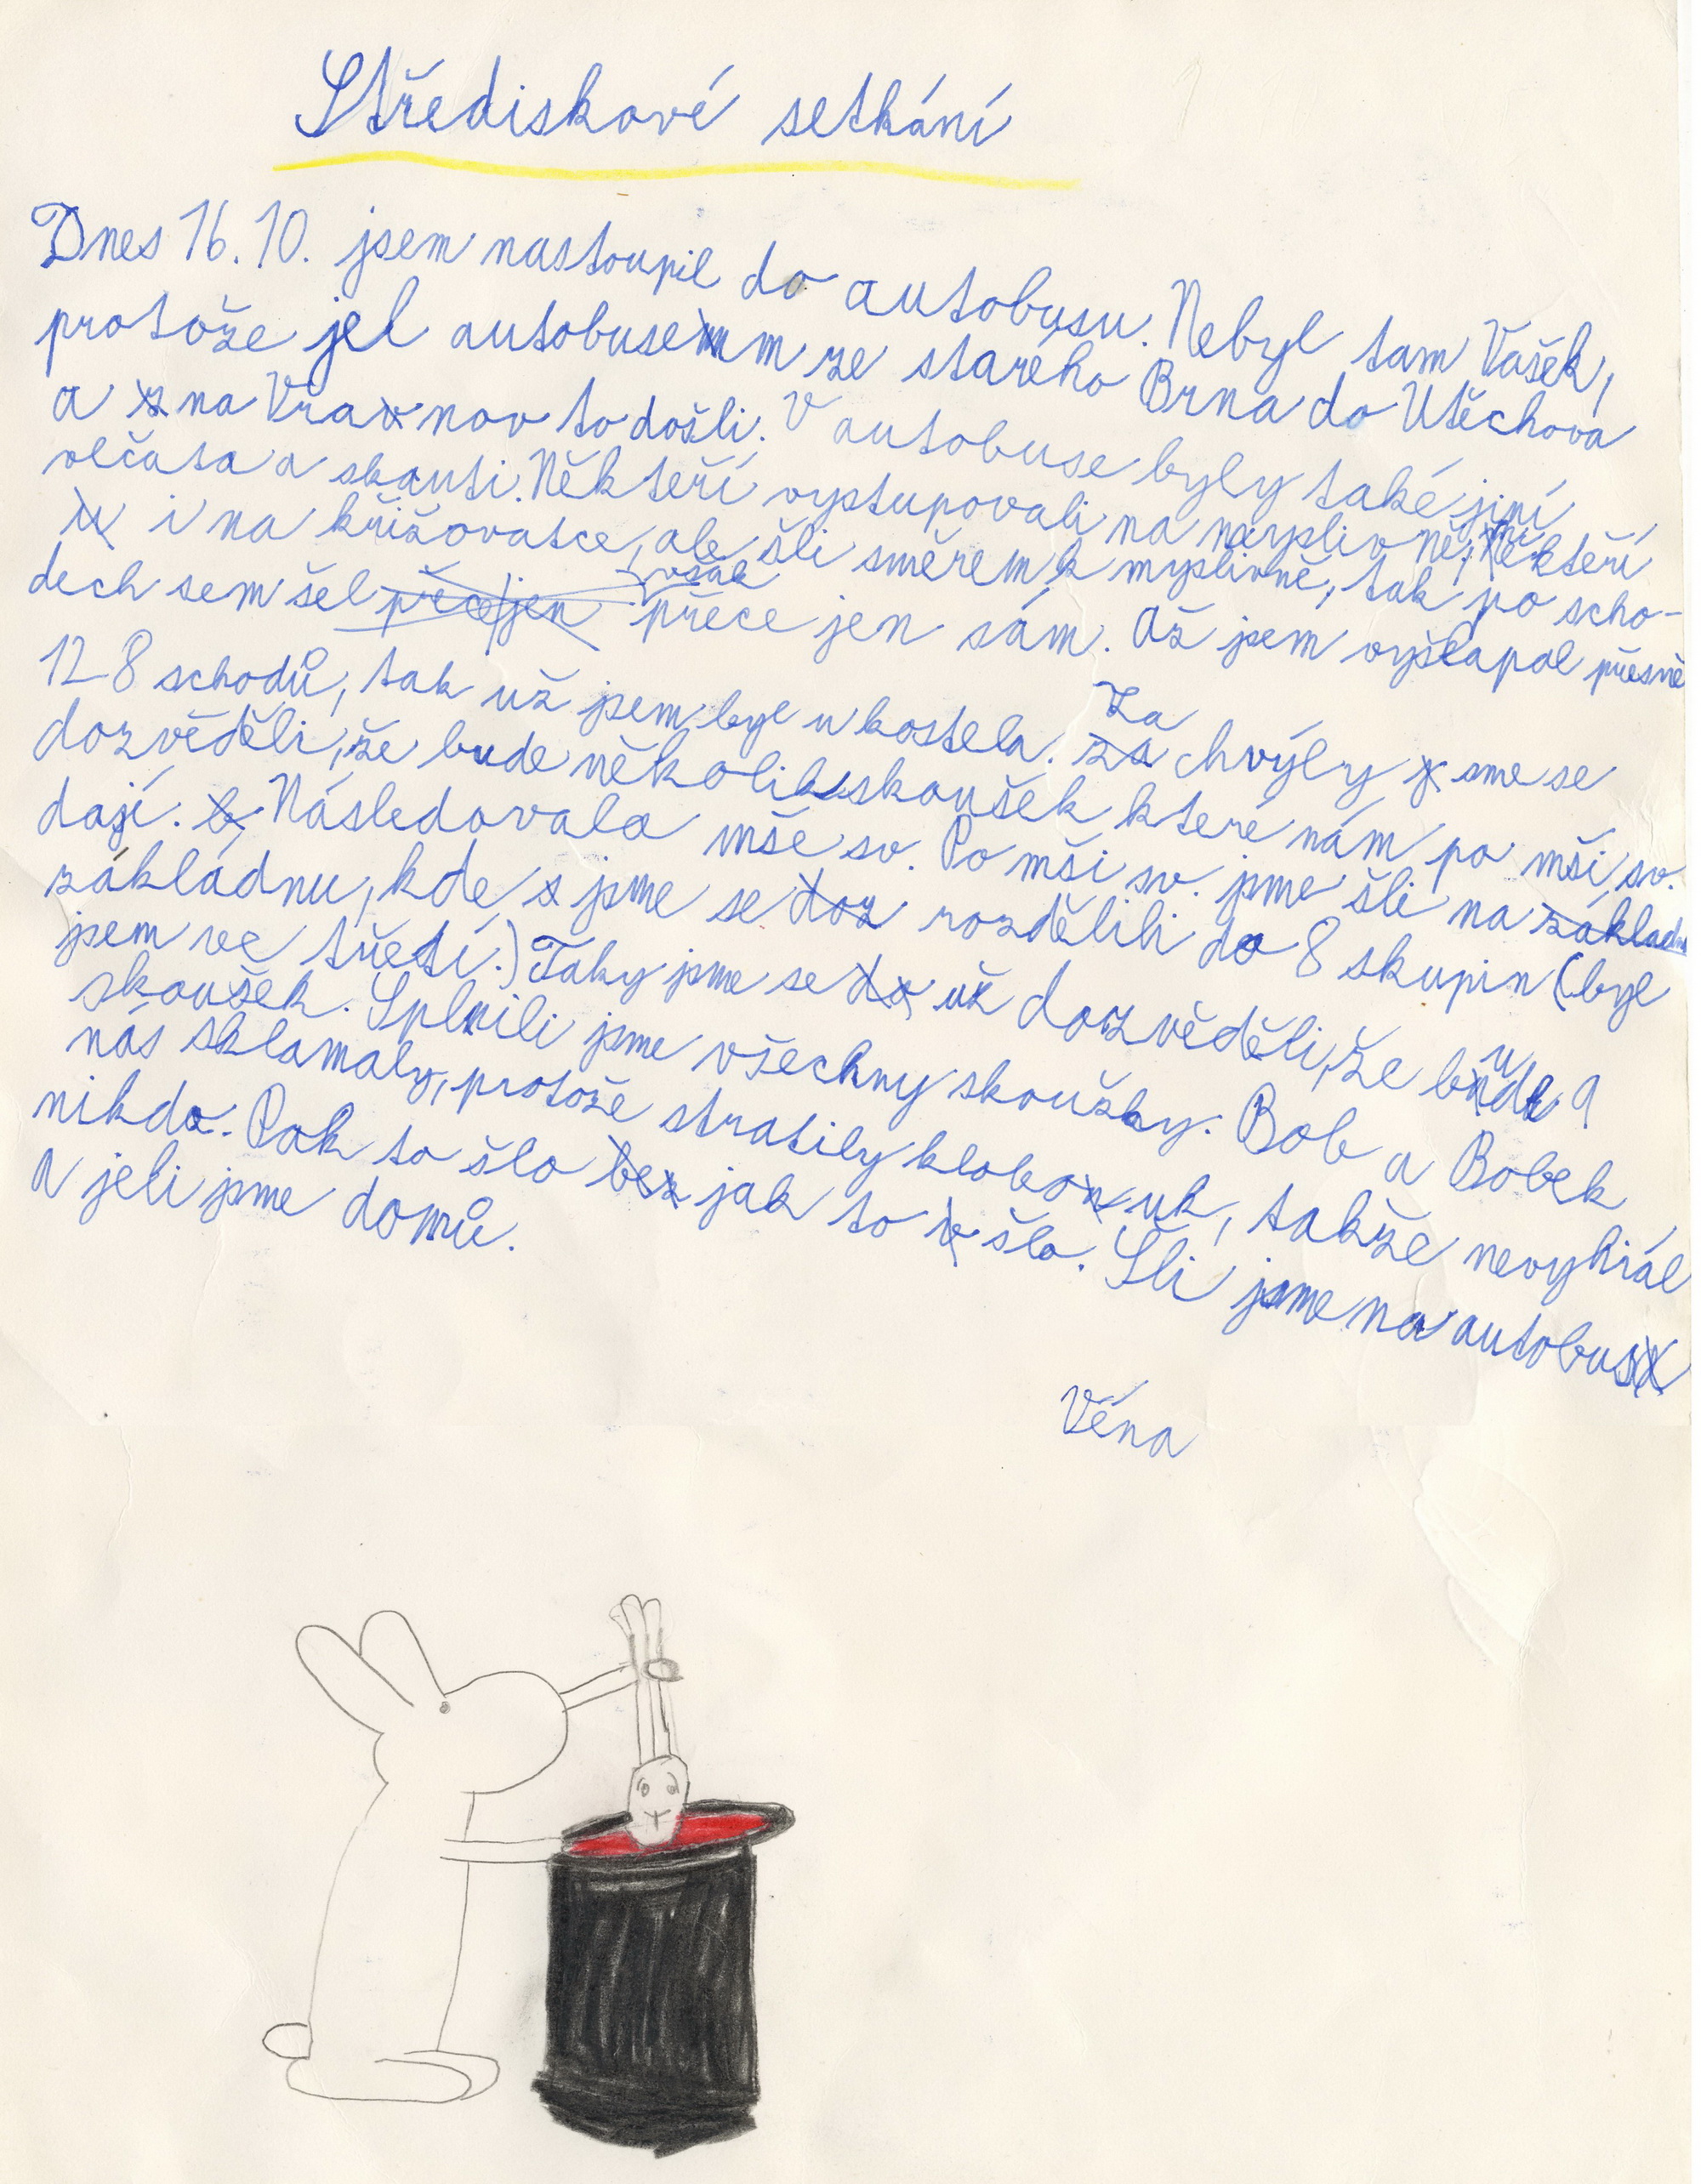 Střediskové setkání
Dnes 16.10. jsem nastoupil do autobusu. Nebyl tam Vašek,
protože jel autobusem ze starého Brna do Utěchova
a na Vranov to došli. V autobuse byly také jiní
vlčata a skauti. Někteří vystupovali na myslivně, někteří
i na křižovatce, ale šli směrem k myslivně, tak po scho-
dech sem šel však přece jen sám. Až jsem vyšlapal přesně
128 schodů, tak už jsem byl u kostela. Za chvýly sme se
dozvěděli, že bude několik skoušek které nám po mši sv.
dají. Následovala mše sv. Po mši sv. jsme šli na
základnu, kde jsme se rozdělili do 8 skupin (byl
jsem ve třetí.) Taky jsme se už dozvěděli, že bude 9
skoušek. Splnili jsme všechny skoušky. Bob a Bobek
nás sklamaly, protože stratily klobouk, takže nevyhrál
nikdo. Pak to šlo jak to šlo. Šli jsme na autobus
A jeli jsme domů.
Véna